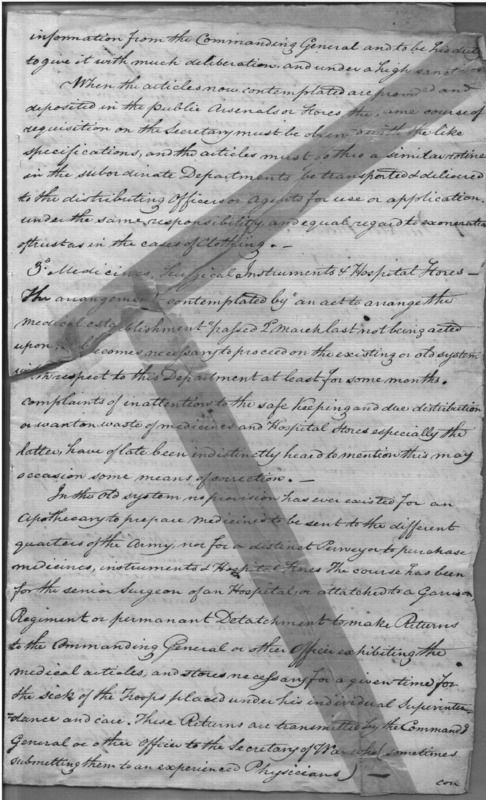 information from the Commanding General and to be his duty
to give it with much deliberation and under a high sanction
When the articles now contemplated are procured and
deposited in the public Arsenals or Stores the same course of
requisition on the Secretary must be observed with the like
specifications, and the articles must thro a similar routine
in the subordinate Departments be transported & delivered
to the distributing Officers or Agents for use or application
under the same responsibility and equal regard to exoneration
of trust as in the cases of Clothing. —
3d Medicines, Surgical Instruments & Hospital Stores —
The arrangement contemplated by "an act to arrange the
medical establishment" passed 2 March last not being acted
upon it becomes necessary to proceed on the existing or old system
with respect to this Department at least for some months.
complaints of inattention to the safe keeping and due distribution
or wanton waste of medicines and Hospital Stores especially the
latter have of late been indistinctly heard to mention this may
occasion some means of correction. —
In the old system no provision has ever existed for an
Apothecary to prepare medicines to be sent to the different
quarters of the Army, nor for a distinct Purveyor to purchase
medicines, instruments & Hospital Stores The course has been
for the senior Surgeon of an Hospital, or attatched to a Garrison
Regiment or permanant Detatchment to make Returns
to the Commanding General or other Officer exhibiting the
medical articles, and stores necessary for a given time for
the sick of the Troops placed under his individual Superinten
-dance and care. These Returns are transmitted by the Command.g
General or other Officer to the Secretary of War who (sometimes
submitting them to an experienced Physician) —
con